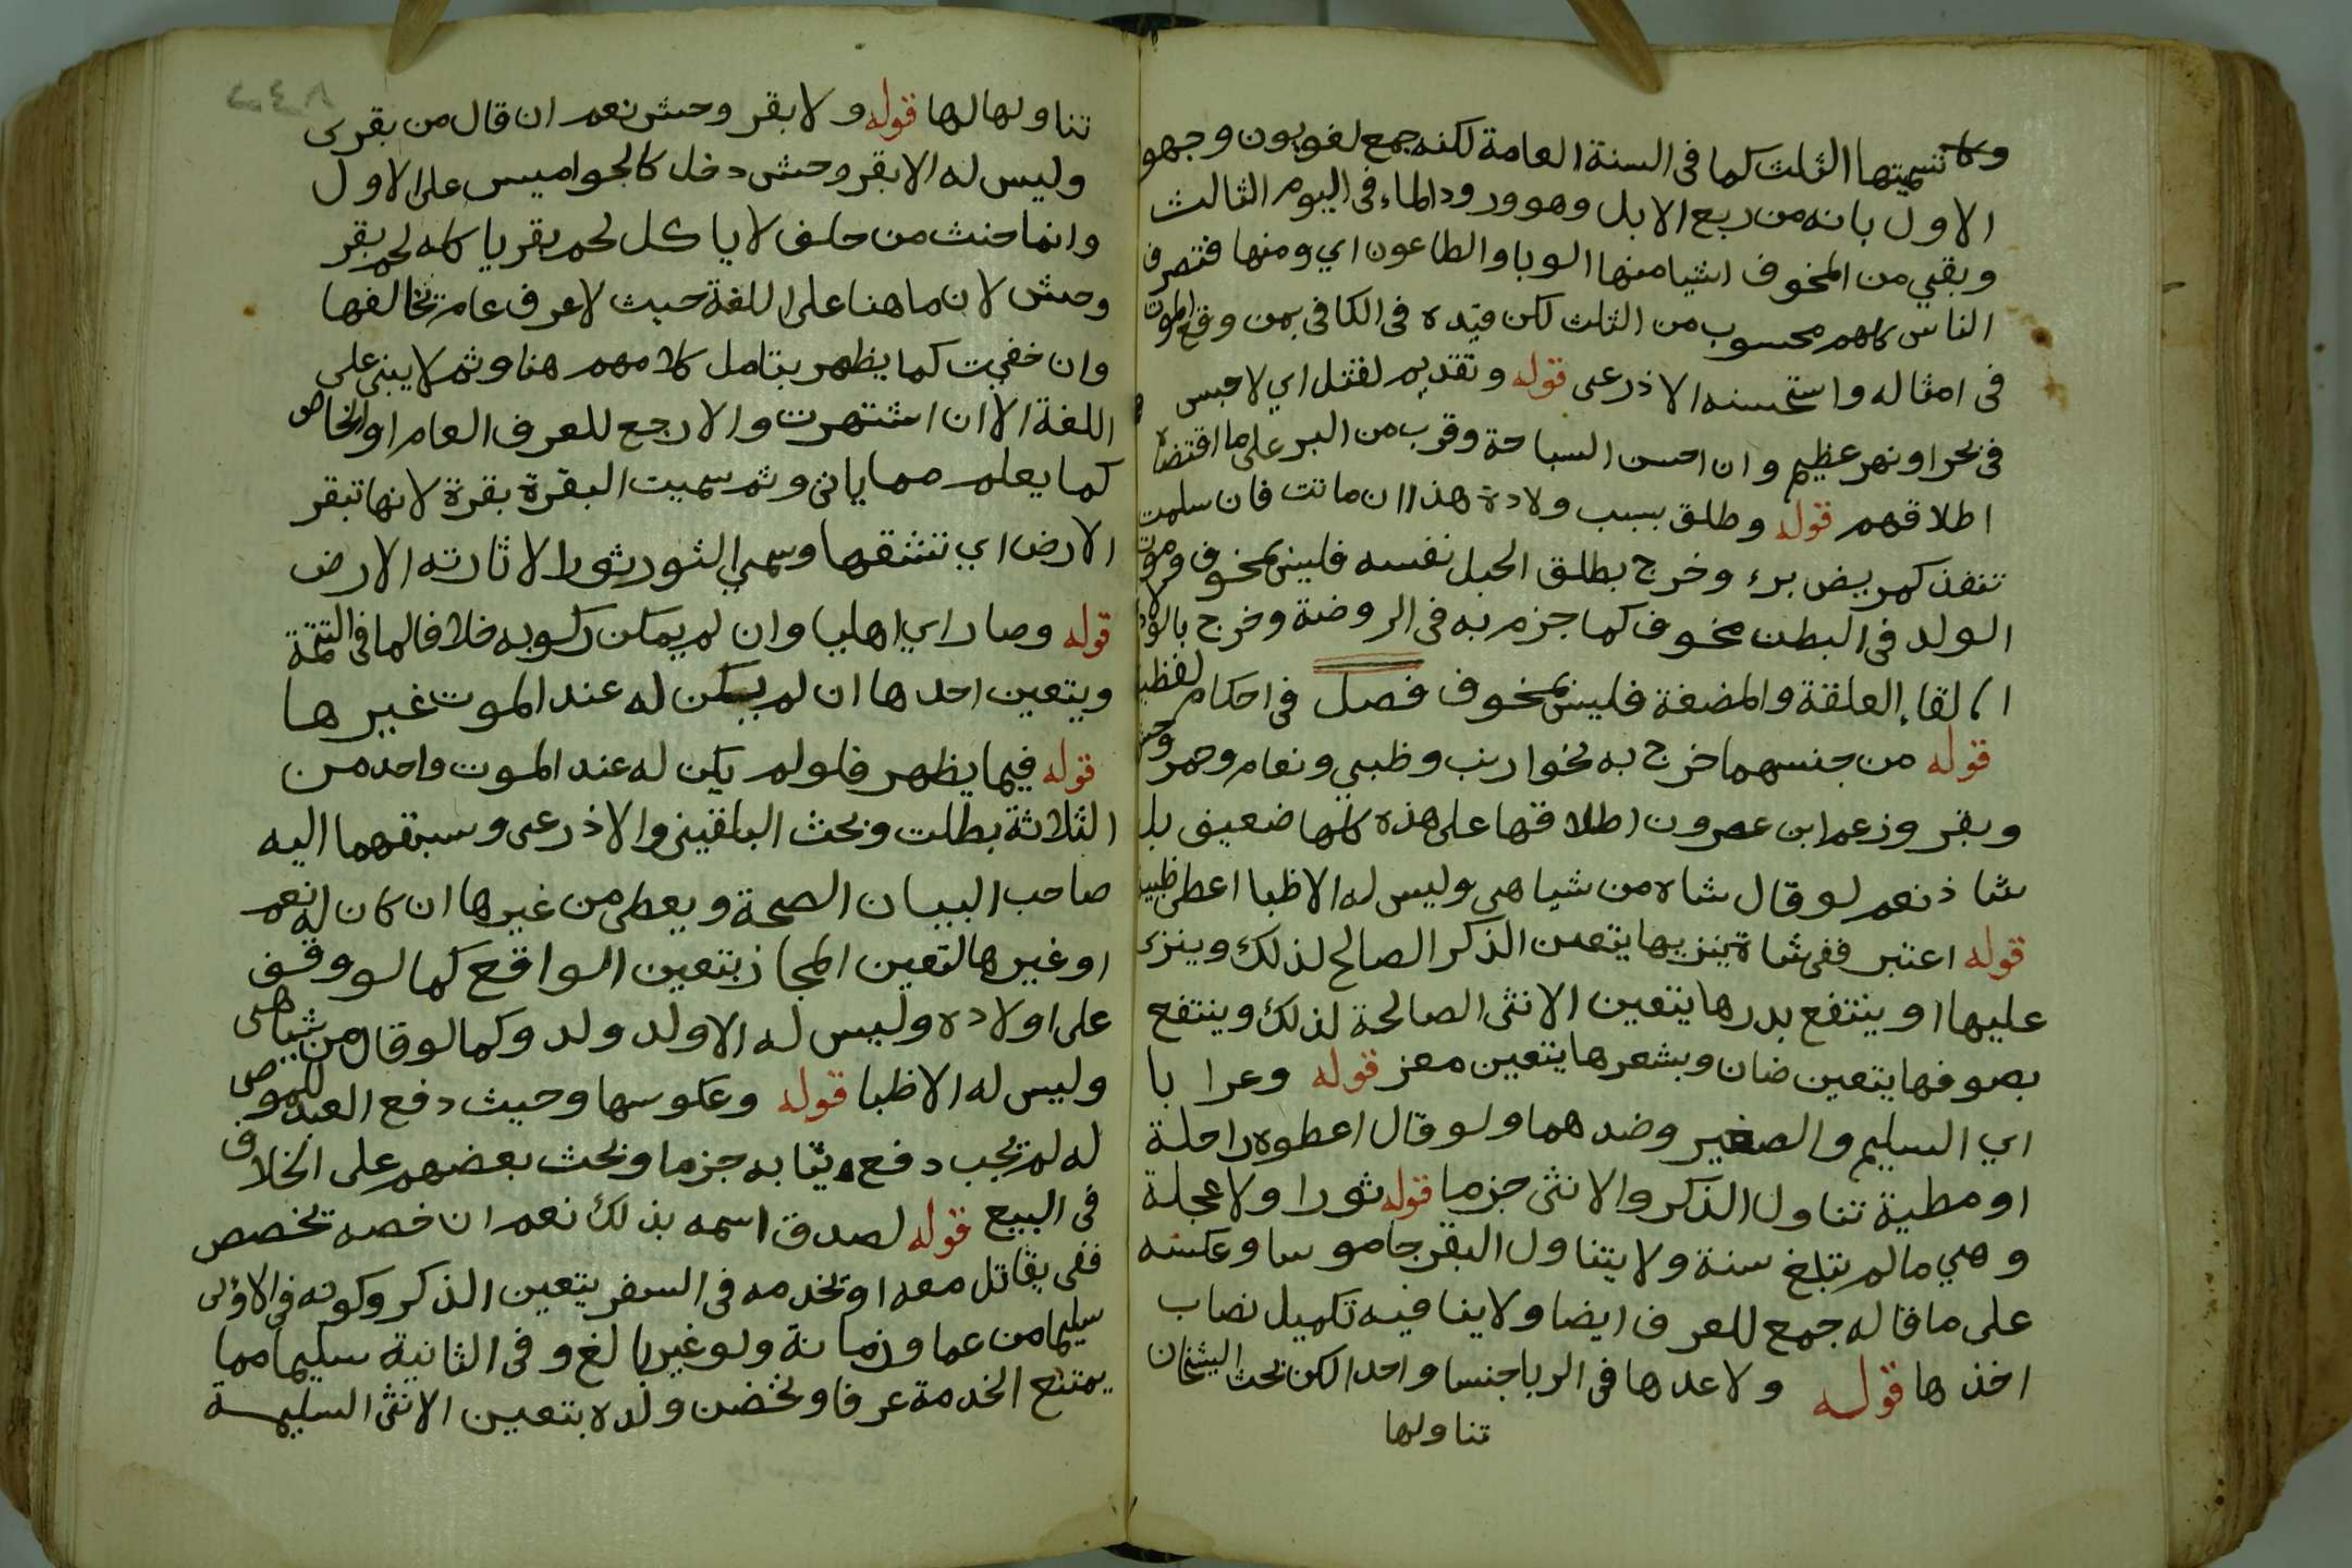 وكا تسميتها الثلث كما في السنة العامة لكنه جمع لغويون وجهوا
الاول بانه من ربع الابل وهو ورود الماء في اليوم الثالث
وبقي من المخوف اشيا منها الوبا والطاعون اي ومنها فتصرف
الناس كلهم محسوب من الثلث لكن قيده في الكافي بمن وقع الموت
في امثاله واستحسنه الاذرعى قوله وتقديم لقتل اي لا حبس
في بحر او نهر عظيم وان احسن السباحة وقرب من البر على ما اقتضاه
اطلاقهم قوله وطلق بسبب ولادة هذا ان ماتت فان سلمت
تنفذ كمريض برء وخرج بطلق الحبل نفسه فليس بمخوف وموت
الولد في البطن مخوف كما جزم به في الروضة وخرج بالولادة
القاء العلقة والمضغة فليس بمخوف فصل في احكام لفظية
قوله من جنسهما خرج به نحو ارنب وظبي ونعام وحمر وحش
وبقر وزعم ابن عصرون اطلاقها على هذه كلها ضعيف بل
شاذ نعم لو قال شاه من شياهى وليس له الا ظبا اعطى ظبيا
قوله اعتبر ففى شاة ينزيها يتعين الذكر الصالح لذلك وينزى
عليها او ينتفع بدرها يتعين الانثى الصالحة لذلك وينتفع
بصوفها يتعين ضان وبشعرها يتعين معز قوله وعرابا
اي السليم والصغير وضدهما ولو قال اعطوه راحلة
او مطية تناول الذكر والانثى جزما قوله ثورا ولا عجلة
وهي ما لم تبلغ سنة ولا يتناول البقر جاموسا وعكسه
على ما قاله جمع للعرف ايضا ولا ينافيه تكميل نصاب
اخذها قوله ولا عدها في الربا جنسا واحدا لكن بحث الشيخان
تناولها
تناولها لها قوله ولا بقر وحش نعم ان قال من بقرى
وليس له الا بقر وحش دخل كالجواميس على الاول
وانما حنث من حلف لا ياكل لحم بقر باكله لحم بقر
وحش لان ما هنا على اللغة حيث لا عرف عام تخالفها
وان خفيت كما يظهر بتامل كلامهم هنا وثم لا يبنى على
اللغة الا ان اشتهرت والا رجع للعرف العام او الخاص
كما يعلم مما ياتي وثم سميت البقرة بقرة لانها تبقر
الارض اي تشقها وسمي الثور ثورا لاثارته الارض
قوله وصار اي اهليا وان لم يمكن ركوبه خلافا لما في التتمة
ويتعين احدها ان لم يكن له عند الموت غيرها
قوله فيما يظهر فلو لم يكن له عند الموت واحد من
الثلاثة بطلت وبحث البلقيني والاذرعى وسبقهما اليه
صاحب البيان الصحة ويعطى من غيرها ان كان له نعم
او غيرها لتعين المجاز بتعين الواقع كما لو وقف
على اولاده وليس له الا ولد ولد وكما لو قال من شياهى
وليس له الا ظبا قوله وعكوسها وحيث دفع العبد للموصى
له لم تجب دفع ثيابه جزما وبحث بعضهم على الخلاف
في البيع قوله لصدق اسمه بذلك نعم ان خصه تخصص
ففى يقاتل معه او تخدمه في السفر يتعين الذكر وكونه في الاولى
سليما من عما وزمانة ولو غير بالغ وفي الثانية سليما مما
يمتنع الخدمة عرفا وتحضن ولده يتعين الانثى السليمة